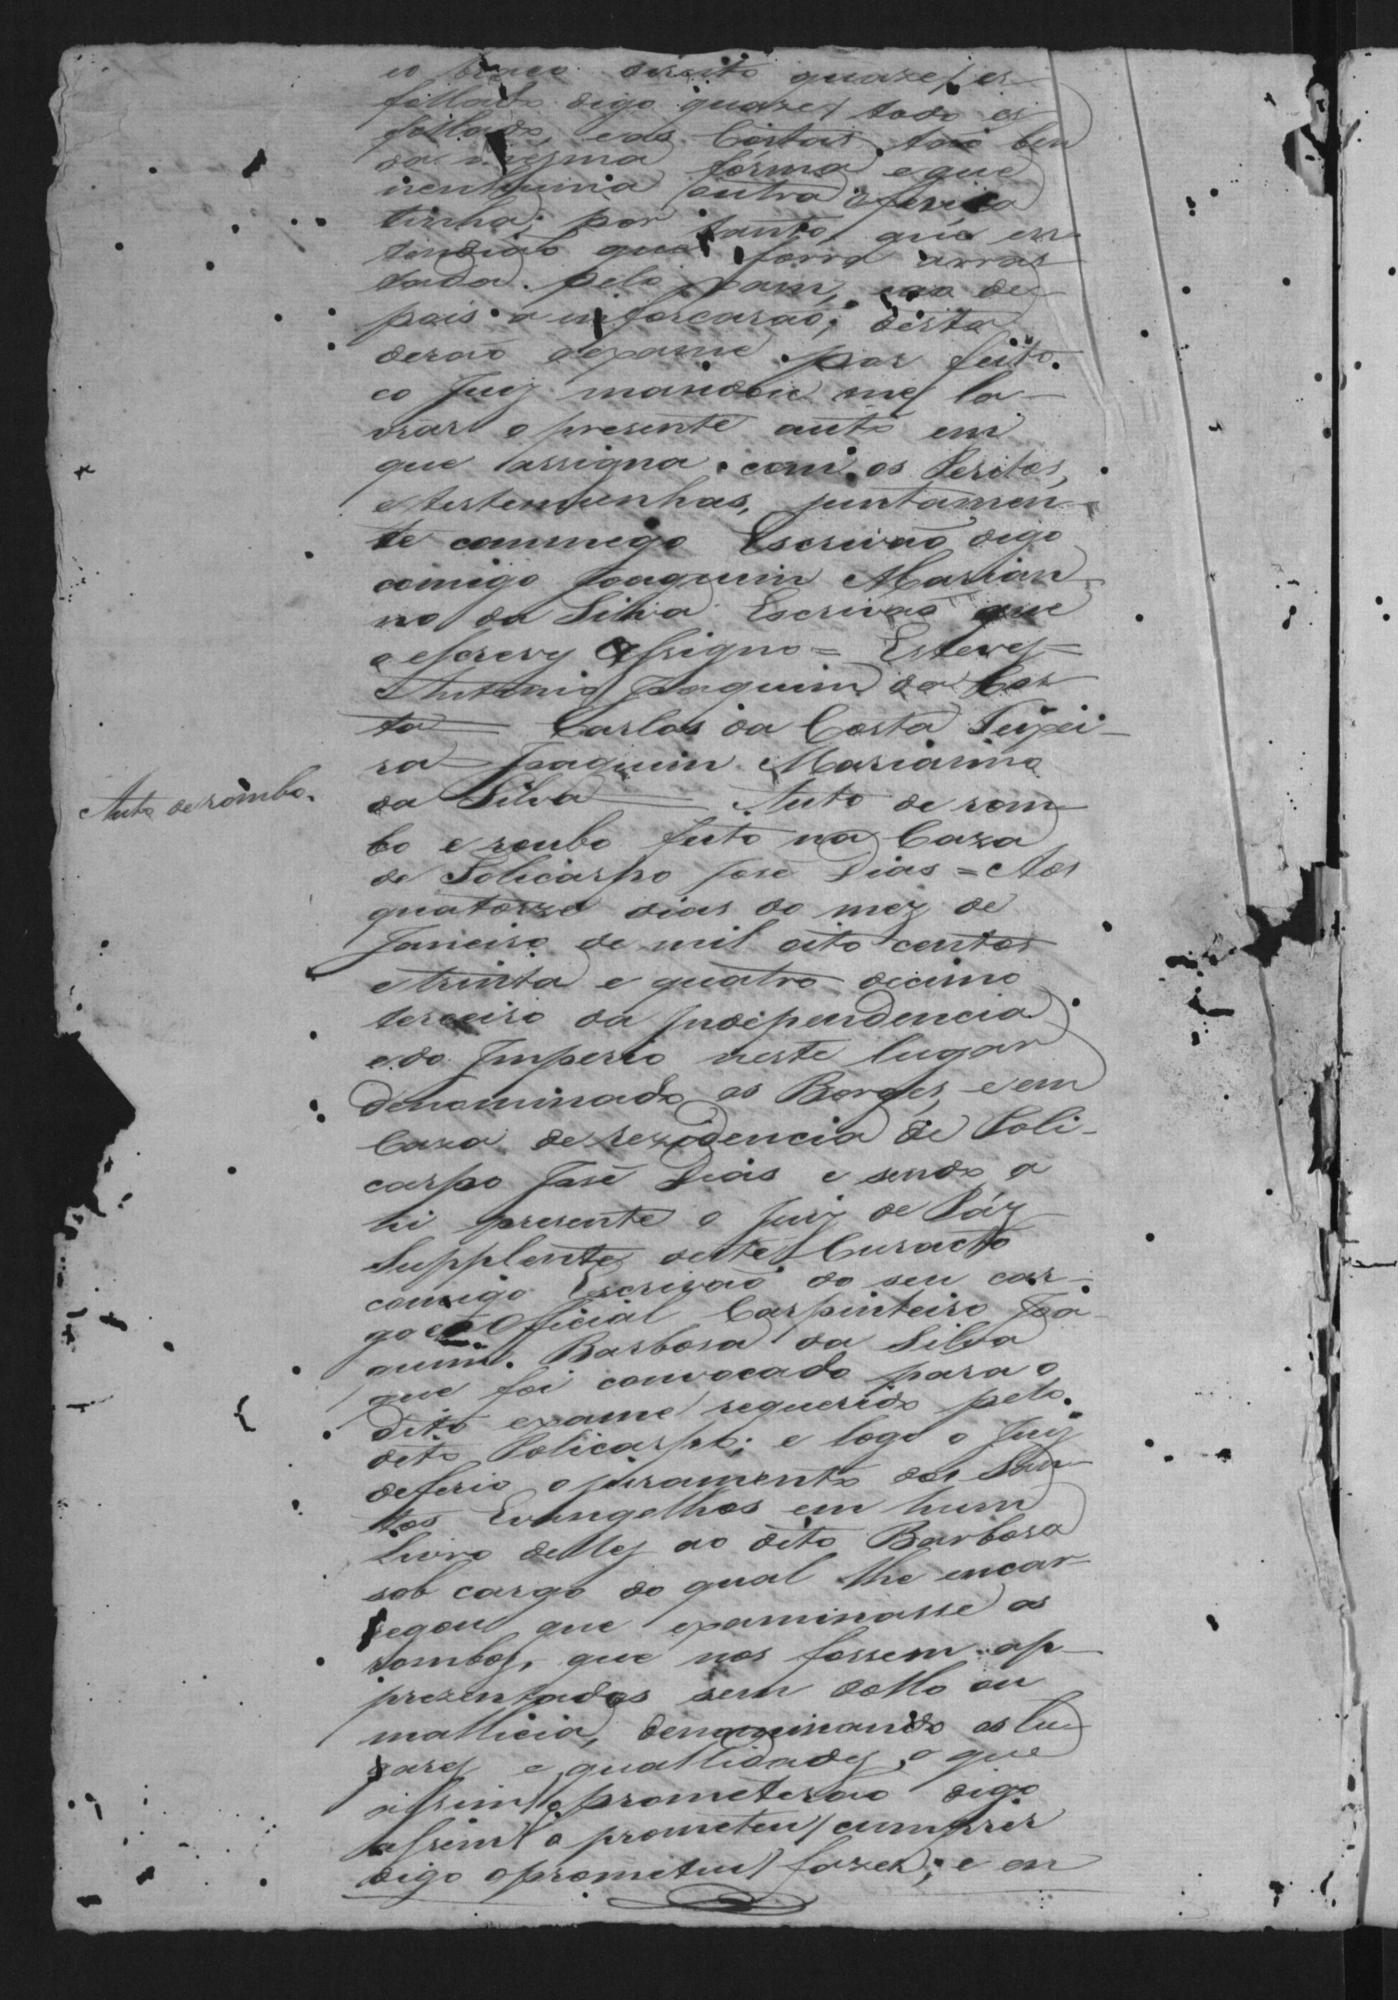 eo braço direito quaze es
follado digo quaze todo es
follado, e as Costas tão ben
da mesma forma e que
nenhuma outra oferica
tinha; por tanto que en
tendião que forra arras
tada pelo xam, e ao de-
pois a inforcarão; desta
derão oexame por feito.
eo Juiz mandou me la-
vrar o presente auto em
que assigna com os Peritos,
etestemunhas, juntamen-
te commego Escrivão digo
comigo Joaquim Marian
no da Silva Escrivão que
oescrevy eassigno = Esteves =
Antonio Joaquim da Cos
ta — Carlos da Costa Teixei-
ra — Joaquim Marianno
da Silva — Auto de rom-
Auto de rombo.
bo e roubo feito na Caza
de Policarpo Jose Dias = Aos
quatorze dias do mez de
Janeiro de mil oito centos
etrinta e quatro decimo
terceiro da Independencia
edo Imperio neste lugar
denominado os Borges, e em
Caza de rezidencia de Poli-
carpo José Dias e sendo a
hi presente o Juiz de Páz
Supplente deste Curacto
comigo Escrivão do seu car-
go e o Oficial Carpinteiro Joa-
quim Barbosa da Silva
que foi convocado para o
dito exame requerido pelo
dito Policarpo; e logo o Juiz
deferio o juramento dos San-
tos Evangelhos em hum
livro delles ao dito Barbosa
sob cargo do qual lhe encar-
regou que examinasse os
rombos, que nos fossem ap-
prezentados sem dollo ou
mallicia, denominando os lu-
gares e quallidades, o que
assim o prometerão digo
assim o prometeu cumprir
digo oprometeu fazer; e en